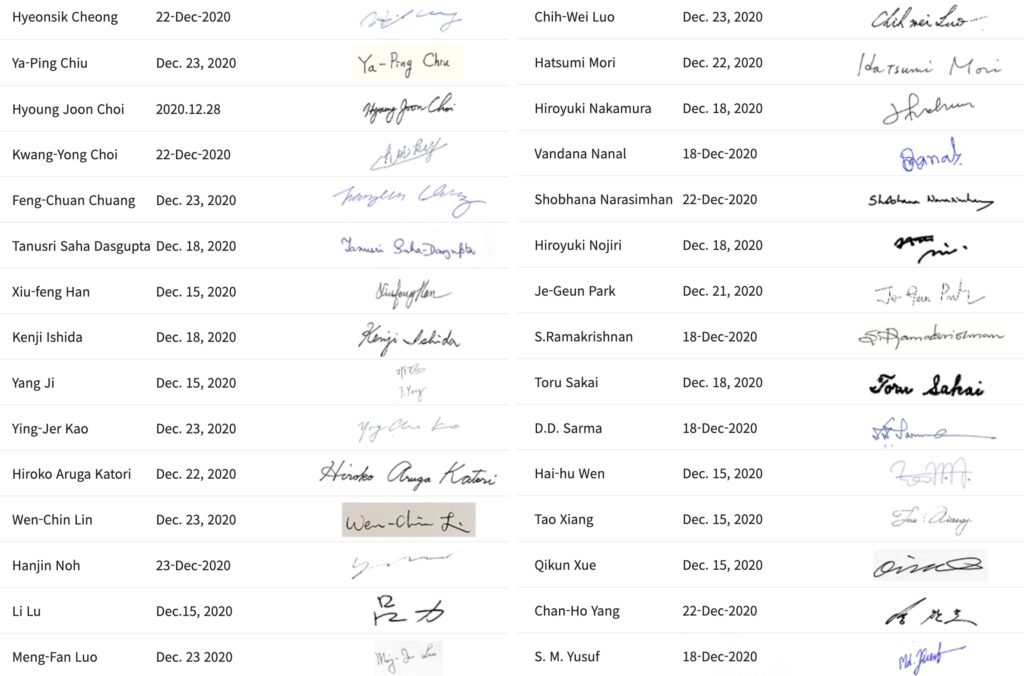 Hyeonsik Cheong 22-Dec-2020
Ya-Ping Chiu Dec. 23, 2020 Ya-Ping Chiu
Hyoung Joon Choi 2020.12.28 Hyoung Joon Choi
Kwang-Yong Choi 22-Dec-2020
Feng-Chuan Chuang Dec. 23, 2020
Tanusri Saha Dasgupta Dec. 18, 2020 Tanusri Saha-Dasgupta
Xiu-feng Han Dec. 15, 2020 Xiufeng Han
Kenji Ishida Dec. 18, 2020 Kenji Ishida
Yang Ji Dec. 15, 2020
Ying-Jer Kao Dec. 23, 2020
Hiroko Aruga Katori Dec. 22, 2020 Hiroko Aruga Katori
Wen-Chin Lin Dec. 23, 2020 Wen-Chin Li
Hanjin Noh 23-Dec-2020
Li Lu Dec.15, 2020 吕力
Meng-Fan Luo Dec. 23 2020
Chih-Wei Luo Dec. 23, 2020 Chih wei Luo
Hatsumi Mori Dec. 22, 2020 Hatsumi Mori
Hiroyuki Nakamura Dec. 18, 2020
Vandana Nanal 18-Dec-2020
Shobhana Narasimhan 22-Dec-2020 Shobhana Narasimhan
Hiroyuki Nojiri Dec. 18, 2020
Je-Geun Park Dec. 21, 2020 Je-Geun Park
S.Ramakrishnan 18-Dec-2020 S.Ramakrishnan
Toru Sakai Dec. 18, 2020 Toru Sakai
D.D. Sarma 18-Dec-2020
Hai-hu Wen Dec. 15, 2020
Tao Xiang Dec. 15, 2020 Tao Xiang
Qikun Xue Dec. 15, 2020
Chan-Ho Yang 22-Dec-2020
S. M. Yusuf 18-Dec-2020